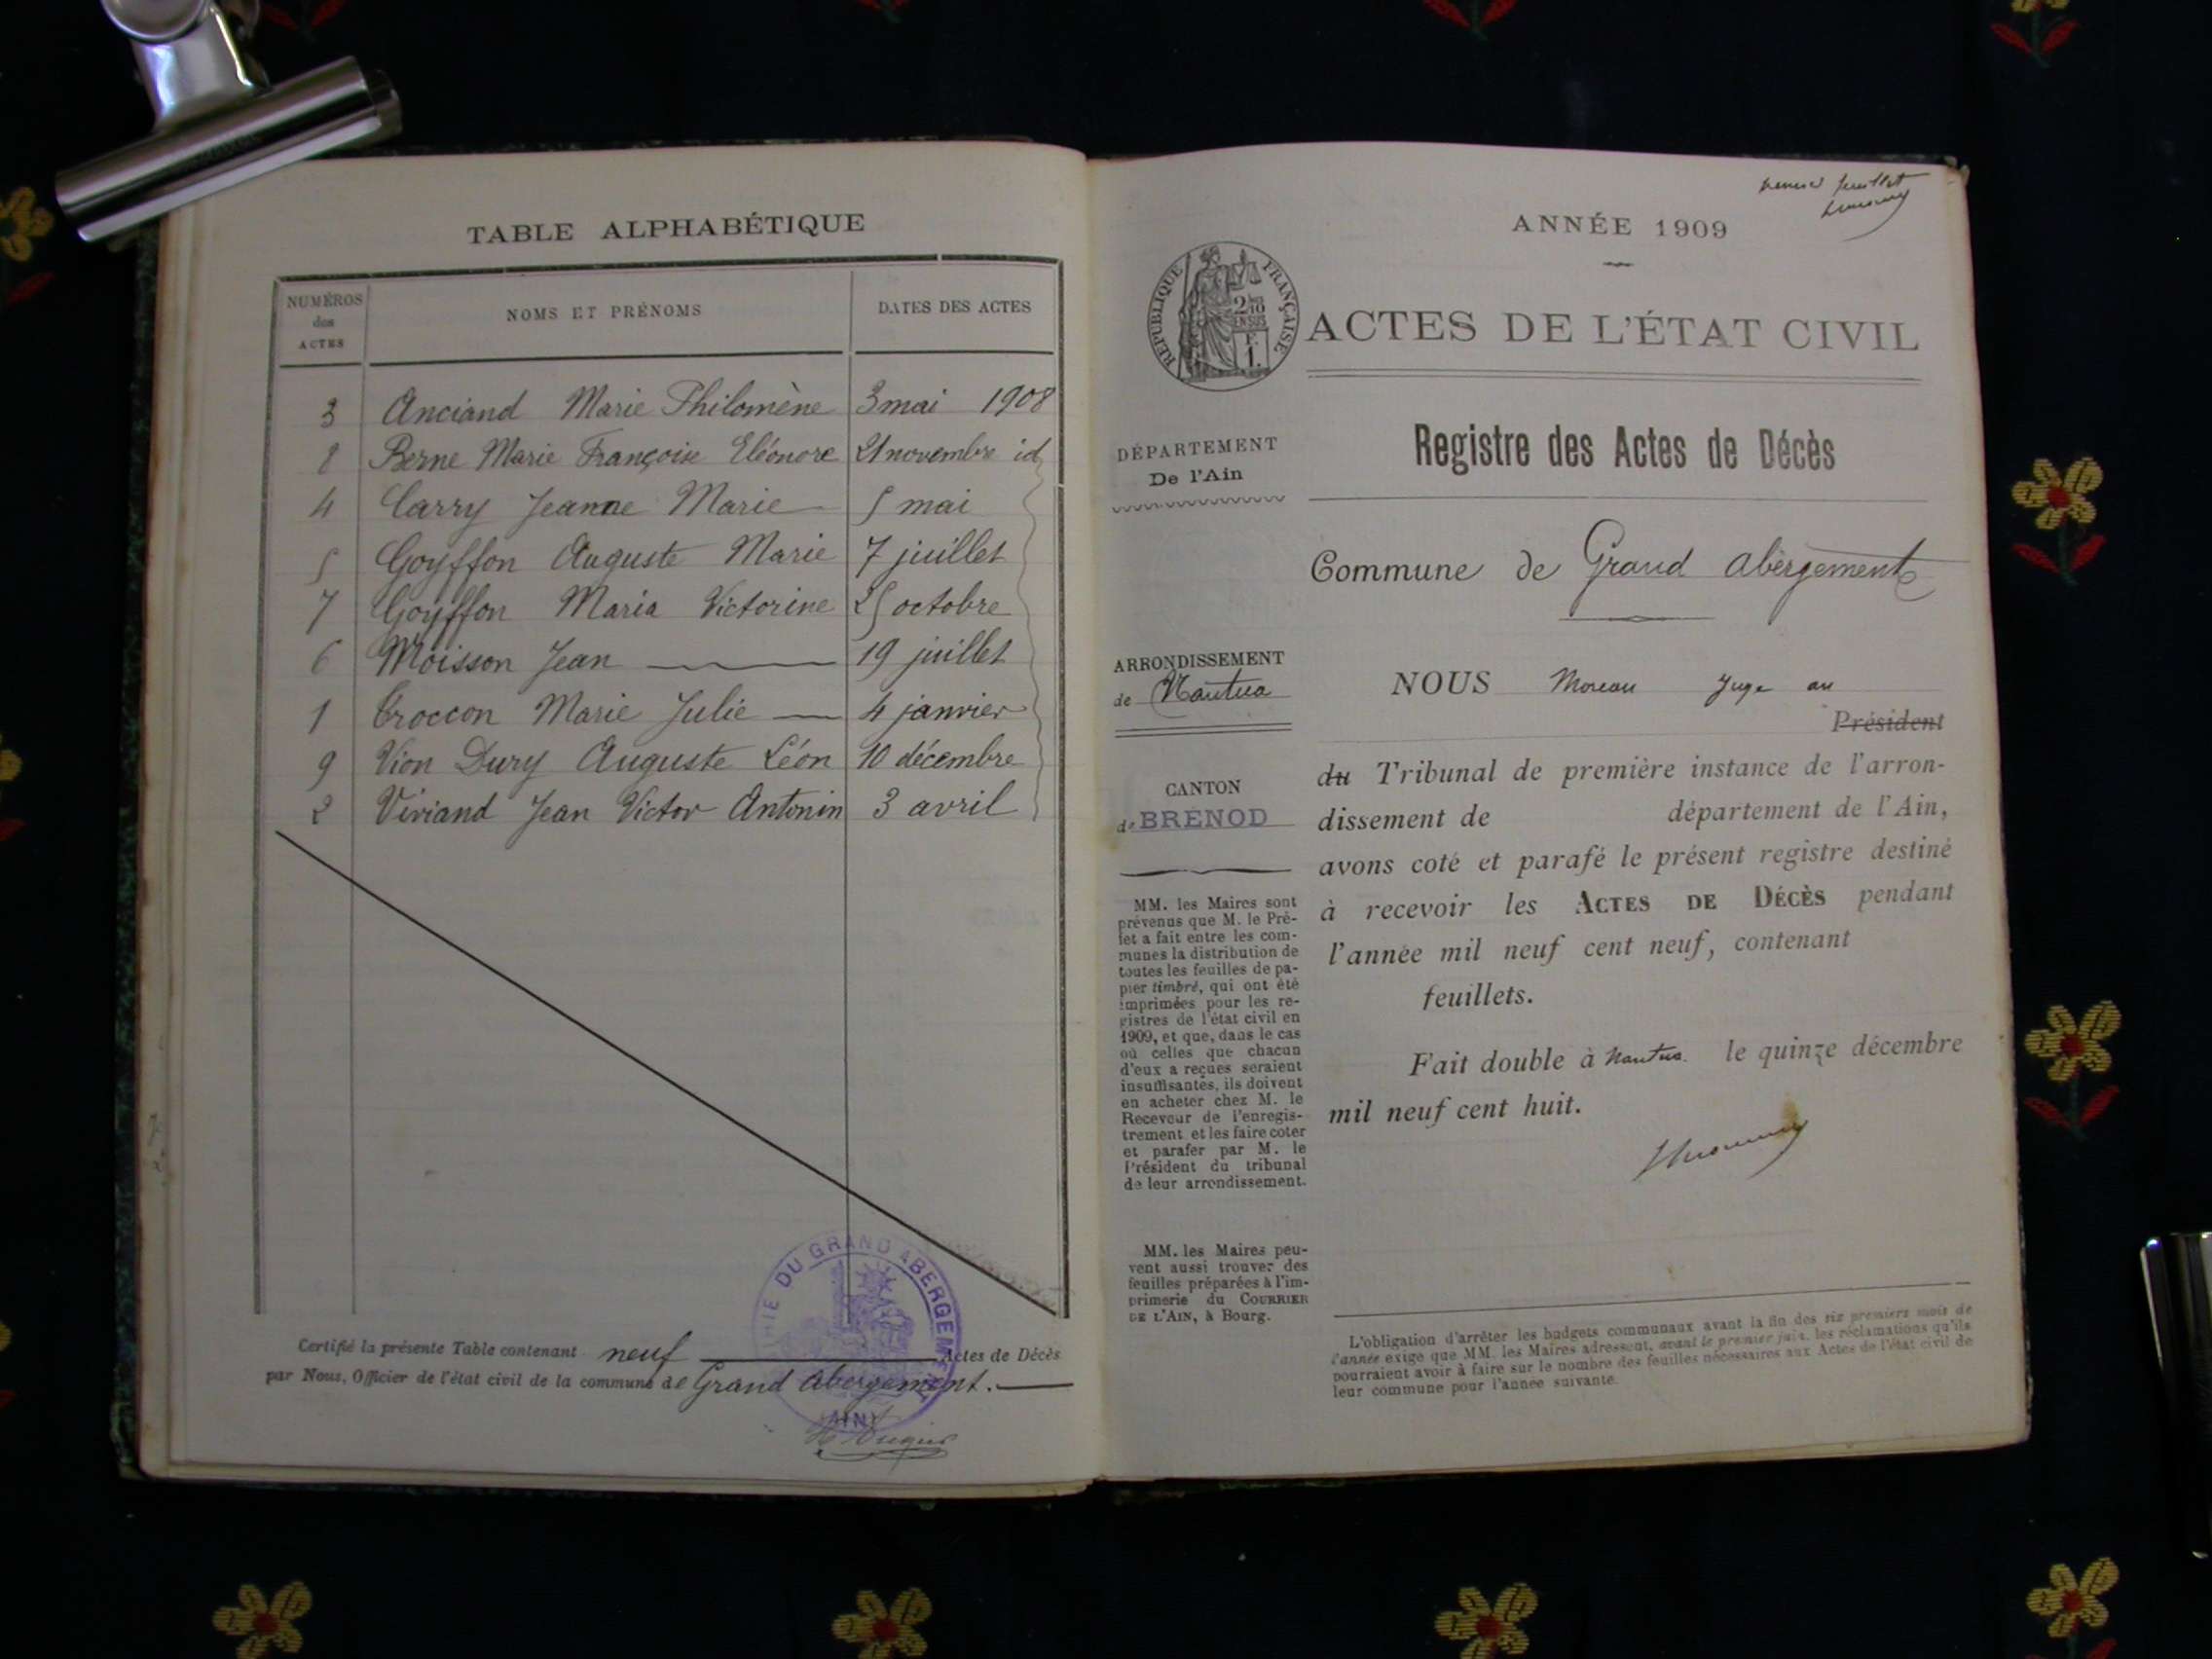 TABLE ALPHABÉTIQUE
NUMÉROS des ACTES
NOMS ET PRÉNOMS
DATES DES ACTES
3 Anciand Marie Philomène 3 mai 1908
8 Berne Marie Françoise Eléonore 21 novembre id
4 Carry Jeanne Marie 5 mai
5 Goyffon Auguste Marie 7 juillet
7 Goyffon Maria Victorine 25 octobre
6 Moisson Jean 19 juillet
1 Troccon Marie Julie 4 janvier
9 Vion Dury Auguste Léon 10 décembre
2 Viviand Jean Victor Antonin 3 avril
Certifié la présente Table contenant neuf Actes de Décès
par Nous, Officier de l'état civil de la commune de Grand Abergement.
MAIRIE DU GRAND ABERGEMENT
(AIN)
ANNÉE 1909
RÉPUBLIQUE FRANÇAISE
2/10 EN SUS
F. 1.
ACTES DE L'ÉTAT CIVIL
DÉPARTEMENT
De l'Ain
Registre des Actes de Décès
Commune de Grand Abergement
ARRONDISSEMENT
de Nantua
CANTON
de BRÉNOD
NOUS Moreau Juge au
Président
du Tribunal de première instance de l'arron-
dissement de département de l'Ain,
avons coté et parafé le présent registre destiné
à recevoir les ACTES DE DÉCÈS pendant
l'année mil neuf cent neuf, contenant
feuillets.
Fait double à Nantua le quinze décembre
mil neuf cent huit.
MM. les Maires sont
prévenus que M. le Pré-
fet a fait entre les com-
munes la distribution de
toutes les feuilles de pa-
pier timbré, qui ont été
imprimées pour les re-
gistres de l'état civil en
1909, et que, dans le cas
où celles que chacun
d'eux a reçues seraient
insuffisantes, ils doivent
en acheter chez M. le
Receveur de l'enregis-
trement et les faire coter
et parafer par M. le
Président du tribunal
de leur arrondissement.
MM. les Maires peu-
vent aussi trouver des
feuilles préparées à l'im-
primerie du COURRIER
DE L'AIN, à Bourg.
L'obligation d'arrêter les budgets communaux avant la fin des six premiers mois de
l'année exige que MM. les Maires adressent, avant le premier juin, les réclamations qu'ils
pourraient avoir à faire sur le nombre des feuilles nécessaires aux Actes de l'état civil de
leur commune pour l'année suivante.